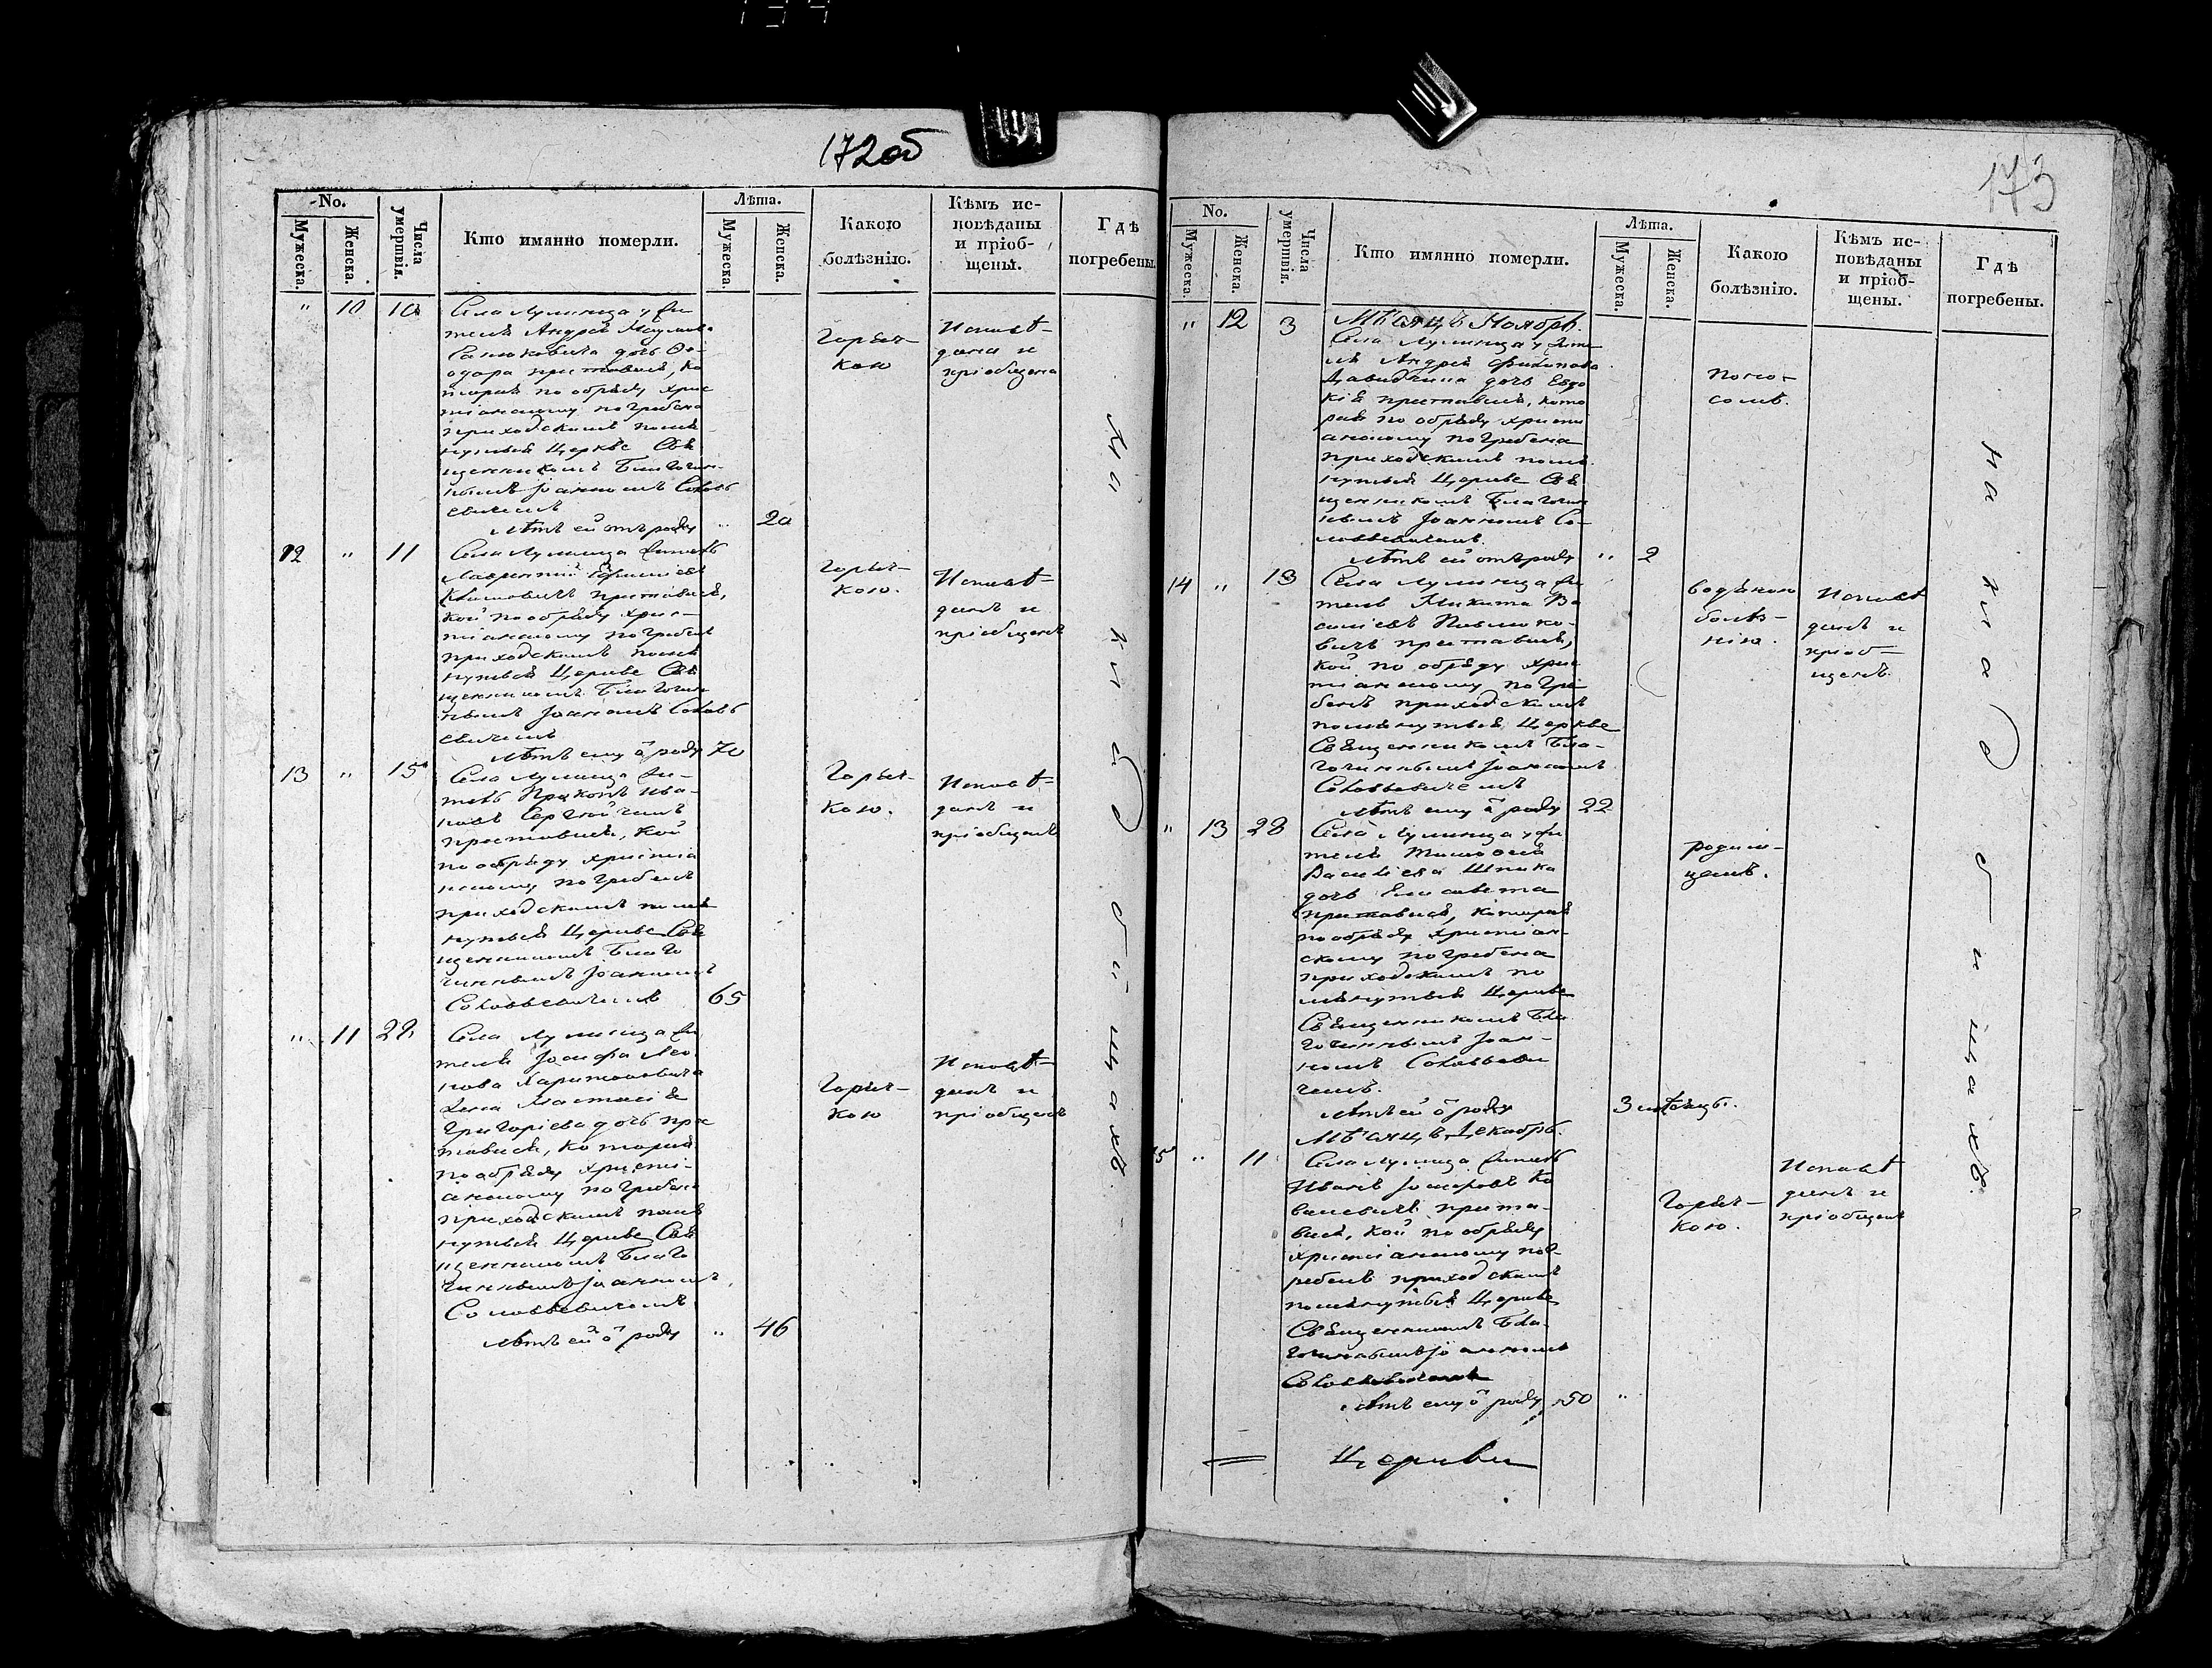 172об
No.
Мужеска.
Женска.
Числа умертвія.
Кто имянно померли.
Лѣта.
Мужеска.
Женска.
Какою
болѣзнію.
Кѣмъ ис-
повѣданы
и пріоб-
щены.
Гдѣ
погребены.
" 10 10
Села Лунинца у жи
теля Андрея
дочь Ѳе-
одора преставися, ко
торая по обряду хрис
тіанскому погребена
приходскимъ помя
нутыя Церкве Свя
щенникомъ Благочин-
нымъ Іоанномъ Соловь
евичемъ
лѣтъ ей отъ роду " 20
Горяч-
кою
Исповѣ-
дана и
пріобщена
12 " 11
Села Лунинца житель
Лаврентій
Климовичъ преставися,
кой по обряду хрис-
тіанскому погребенъ
приходскимъ помя
нутыя Церкве Свя
щенникомъ Благочин
нымъ Іоанномъ Соловь
евичемъ
лѣтъ ему ѿ роду 70
Горяч-
кою.
Исповѣ-
данъ и
пріобщенъ
13 " 15
Села Лунинца жи-
тель Прокопъ Ива-
новъ
преставися, кой
по обряду христіа
нскому погребенъ
приходскимъ помя
нутыя Церкве Свя
щенникомъ Благо
чиннымъ Іоанномъ
Соловьевичемъ 65
Горяч-
кою.
Исповѣ-
данъ и
пріобщенъ
" 11 28
Села Лунинца жи
теля Іосифа Лео
нова Харитоновича
жена Настасія
Григоріева дочь пре
тавися, которая
по обряду христі-
анскому погребена
приходскимъ помя
нутыя Церкве Свя
щенникомъ Благо
чиннымъ Іоанномъ
Соловьевичемъ
лѣтъ ей ѿ роду " 46
Горяч-
кою
Исповѣ-
данъ и
пріобщенъ
на кладбищахъ.
173
No.
Мужеска.
Женска.
Числа умертвія.
Кто имянно померли.
Лѣта.
Мужеска.
Женска.
Какою
болѣзнію.
Кѣмъ ис-
повѣданы
и пріоб-
щены.
Гдѣ
погребены.
Мѣсяцъ Ноябрь.
" 12 3
Села Лунинца у жите
ля Андрея Филипова
дочь Евдо
кія преставися, кото
рая по обряду христи
анскому погребена
приходскимъ помя
нутыя Церкве Свя
щенникомъ Благочин
нымъ Іоанномъ Со-
ловьевичемъ.
лѣтъ ей отъ роду " 2
Поно-
сомъ.
14 " 18
Села Лунинца жи
тель Микита Ва
силіевъ
преставися,
кой по обряду хрис
тіанскому погре
бенъ приходскимъ
помянутыя Церкве
Священникомъ Бла-
гочиннымъ Іоанномъ
Соловьевичемъ
лѣтъ ему ѿ роду 22
водяною
болѣз-
нію.
Исповѣ
данъ и
пріоб-
щенъ.
" 13 28
Села Лунинца у жи
теля Тимоѳея
Василіева Шпака
дочь Елисавета
преставися, которая
по обряду христіан-
скому погребена
приходскимъ по
мянутыя Церкве
Священникомъ Бла
гочиннымъ Іоан-
номъ Соловьеви
чемъ.
лѣтъ ей ѿ роду 3 мѣсяцъ.
родим-
цемъ.
Мѣсяцъ Декабрь.
15 " 11
Села Лунинца житель
Иванъ Іосифовъ Ко
валевичъ преста-
вися, кой по обряду
христіанскому пог-
ребенъ приходскимъ
помянутыя Церкве
Священникомъ Бла-
гочиннымъ Іоанномъ
Соловьевичемъ
лѣтъ ему ѿ роду 50 "
Горяч-
кою.
Исповѣ
данъ и
пріобщенъ
на кладбищахъ.
Церкви